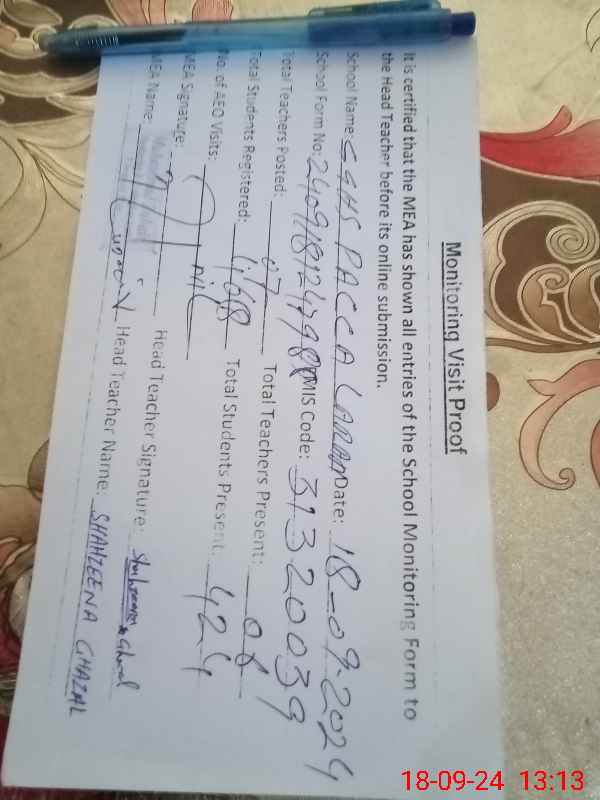 Monitoring Visit Proof
It is certified that the MEA has shown all entries of the School Monitoring Form to
the Head Teacher before its online submission.
School Name: GGHS PACCA LARAN Date: 18-09-2024
School Form No: EMIS Code: 31320039
Total Teachers Posted: 07 Total Teachers Present: 06
Total Students Registered: 468 Total Students Present: 424
No. of AEO Visits: NIL
MEA Signature: Head Teacher Signature:
MEA Name: Head Teacher Name: SHAHZEENA GHAZAL
18-09-24 13:13